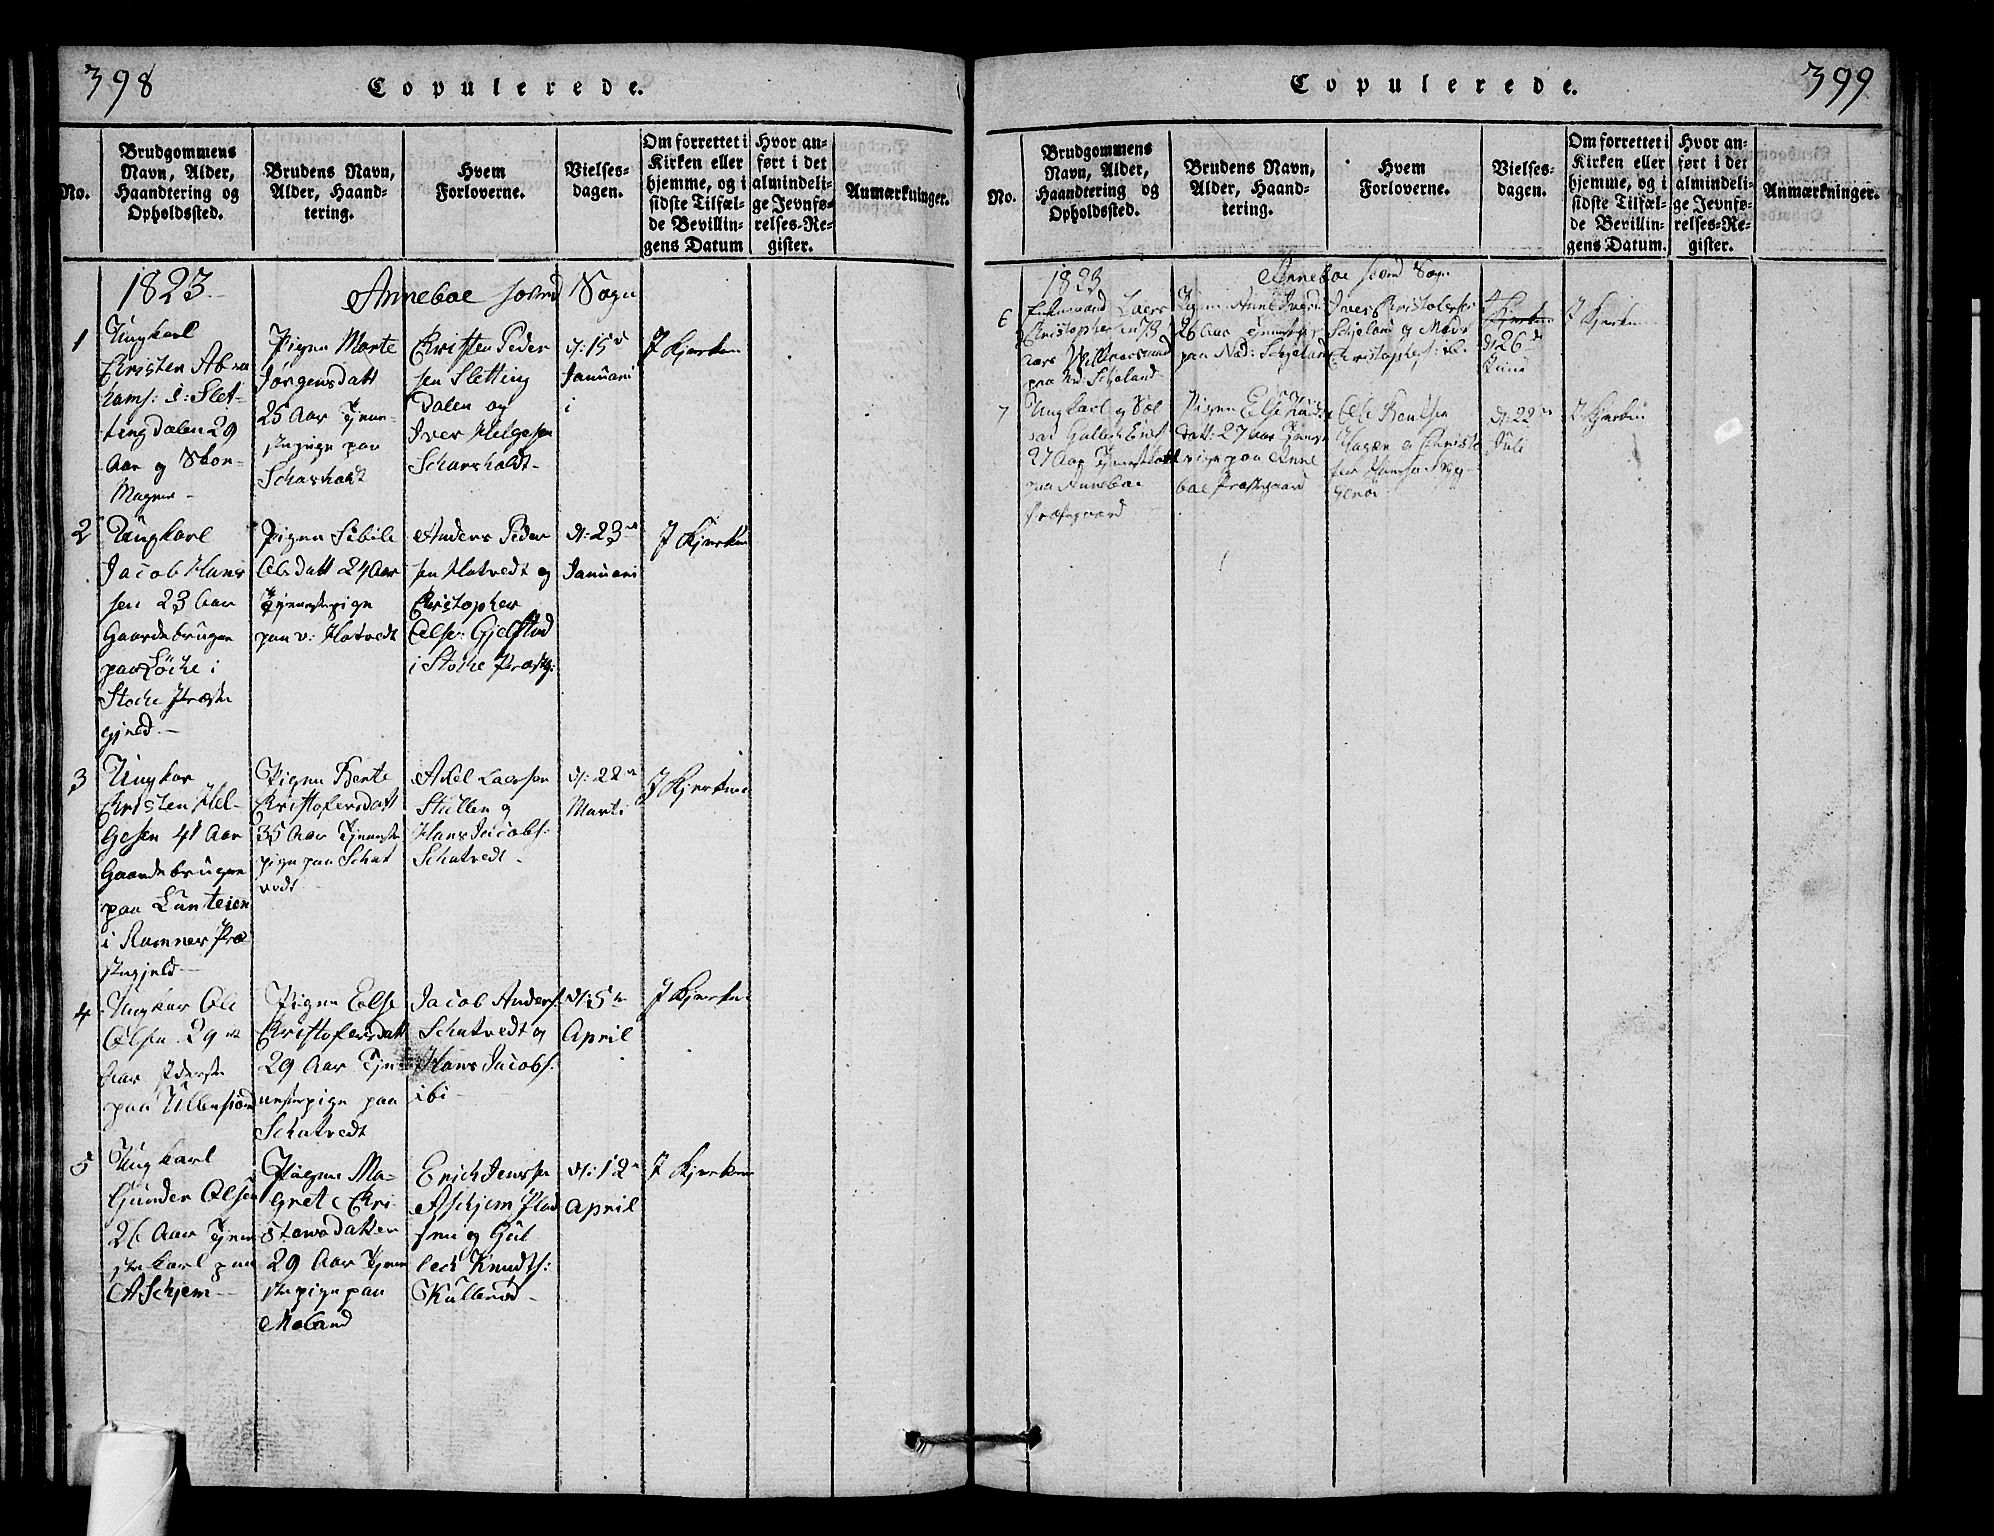 398
Copulerede.
No.
Brudgommens Navn, Alder, Haandtering og Opholdssted.
Brudens Navn, Alder, Haandtering.
Hvem Forloverne.
Vielsesdagen.
Om forrettet i Kirken eller hjemme, og i sidste Tilfælde Bevillingens Datum
Hvor anført i det almindelige Jevnførelses-Register.
Anmærkninger.
1823. Anneboe Sogn
1
Ungkarl
Christen Abra
hams: i: Slet-
tingdalen 29
Aar og
Pigen Marte
Jörgensdatt
25 Aar Tjene-
stepige paa
Christen Peder
sen Sletting
Dalen og
Iver Helgesen
d: 15
Januari
i
I Kjerken
2
Ungkarl
Jacob Hans
sen 23 Aar
Gaardebruger
paa i
Stocke Præste
gjeld.-
Pigen Sibile
Olsdatt 24 Aar
Tjenestepige
paa v: Hotvedt
Anders Peder
sen Hotvedt og
Christopher
Olse: Gjelstad
i Stocke Præstg:
d: 23
Januari
I Kjerken
3
Ungkar
Christen Hel-
gesen 41 Aar
Gaardebruger
paa Lunteien
i Ramnes Præ
stegjeld-
Pigen Berte
Christofersdatt
35 Aar Tjeneste
pige paa Schat
vedt
Axel Laersen
Stullen og
Hans Jacobs:
Schatvedt-
d: 22
Marti
I Kjerken
4
Ungkar Ole
Olsen 29
Aar
paa
Pigen Else
Christofersdatt
29 Aar Tje
nestepige paa
Schatvedt
Jacob Anders:
Schatvedt og
Hans Jacobs:
ibi-
d: 5
April
I Kjerken
5
Ungkarl
Gunder Olsen
26 Aar Tjene
stekarl paa
Aschjem-
Pigen Ma-
gret Chri
stensdatter
29 Aar Tjene
stepige paa
Moland
Erich Jenssen
Aschjem Plad
sen og Gul
lech Knudts:
Kullerød-
d: 12
April
I Kjerken
399
Copulerede.
No.
Brudgommens Navn, Alder, Haandtering og Opholdssted.
Brudens Navn, Alder, Haandtering.
Hvem Forloverne.
Vielsesdagen.
Om forrettet i Kirken eller hjemme, og i sidste Tilfælde Bevillingens Datum.
Hvor anført i det almindelige Jevnførelses-Register.
Anmærkninger.
1823 Anneboe Sogn
6
Enkemand Laers
Christophersen 73
Aars
paa Nd: Schjeland
Pigen Anne Ivers
26 Aar Tjenestepi
paa Ned: Schjeland
Iver Christofersen
Schjeland og Mads
Christophers: ib.
d 26
Juni
I Kjerken
7
Ungkarl og
27 Aar Tjenestekarl
paa Anneboe
Præstegaard
Pigen Else
datt: 27 Aar Tjene
stepige paa Anne
boe Præstegaard
Ole Bentsen
og Christo
fer Hans
d: 22
Juli
I Kjerken